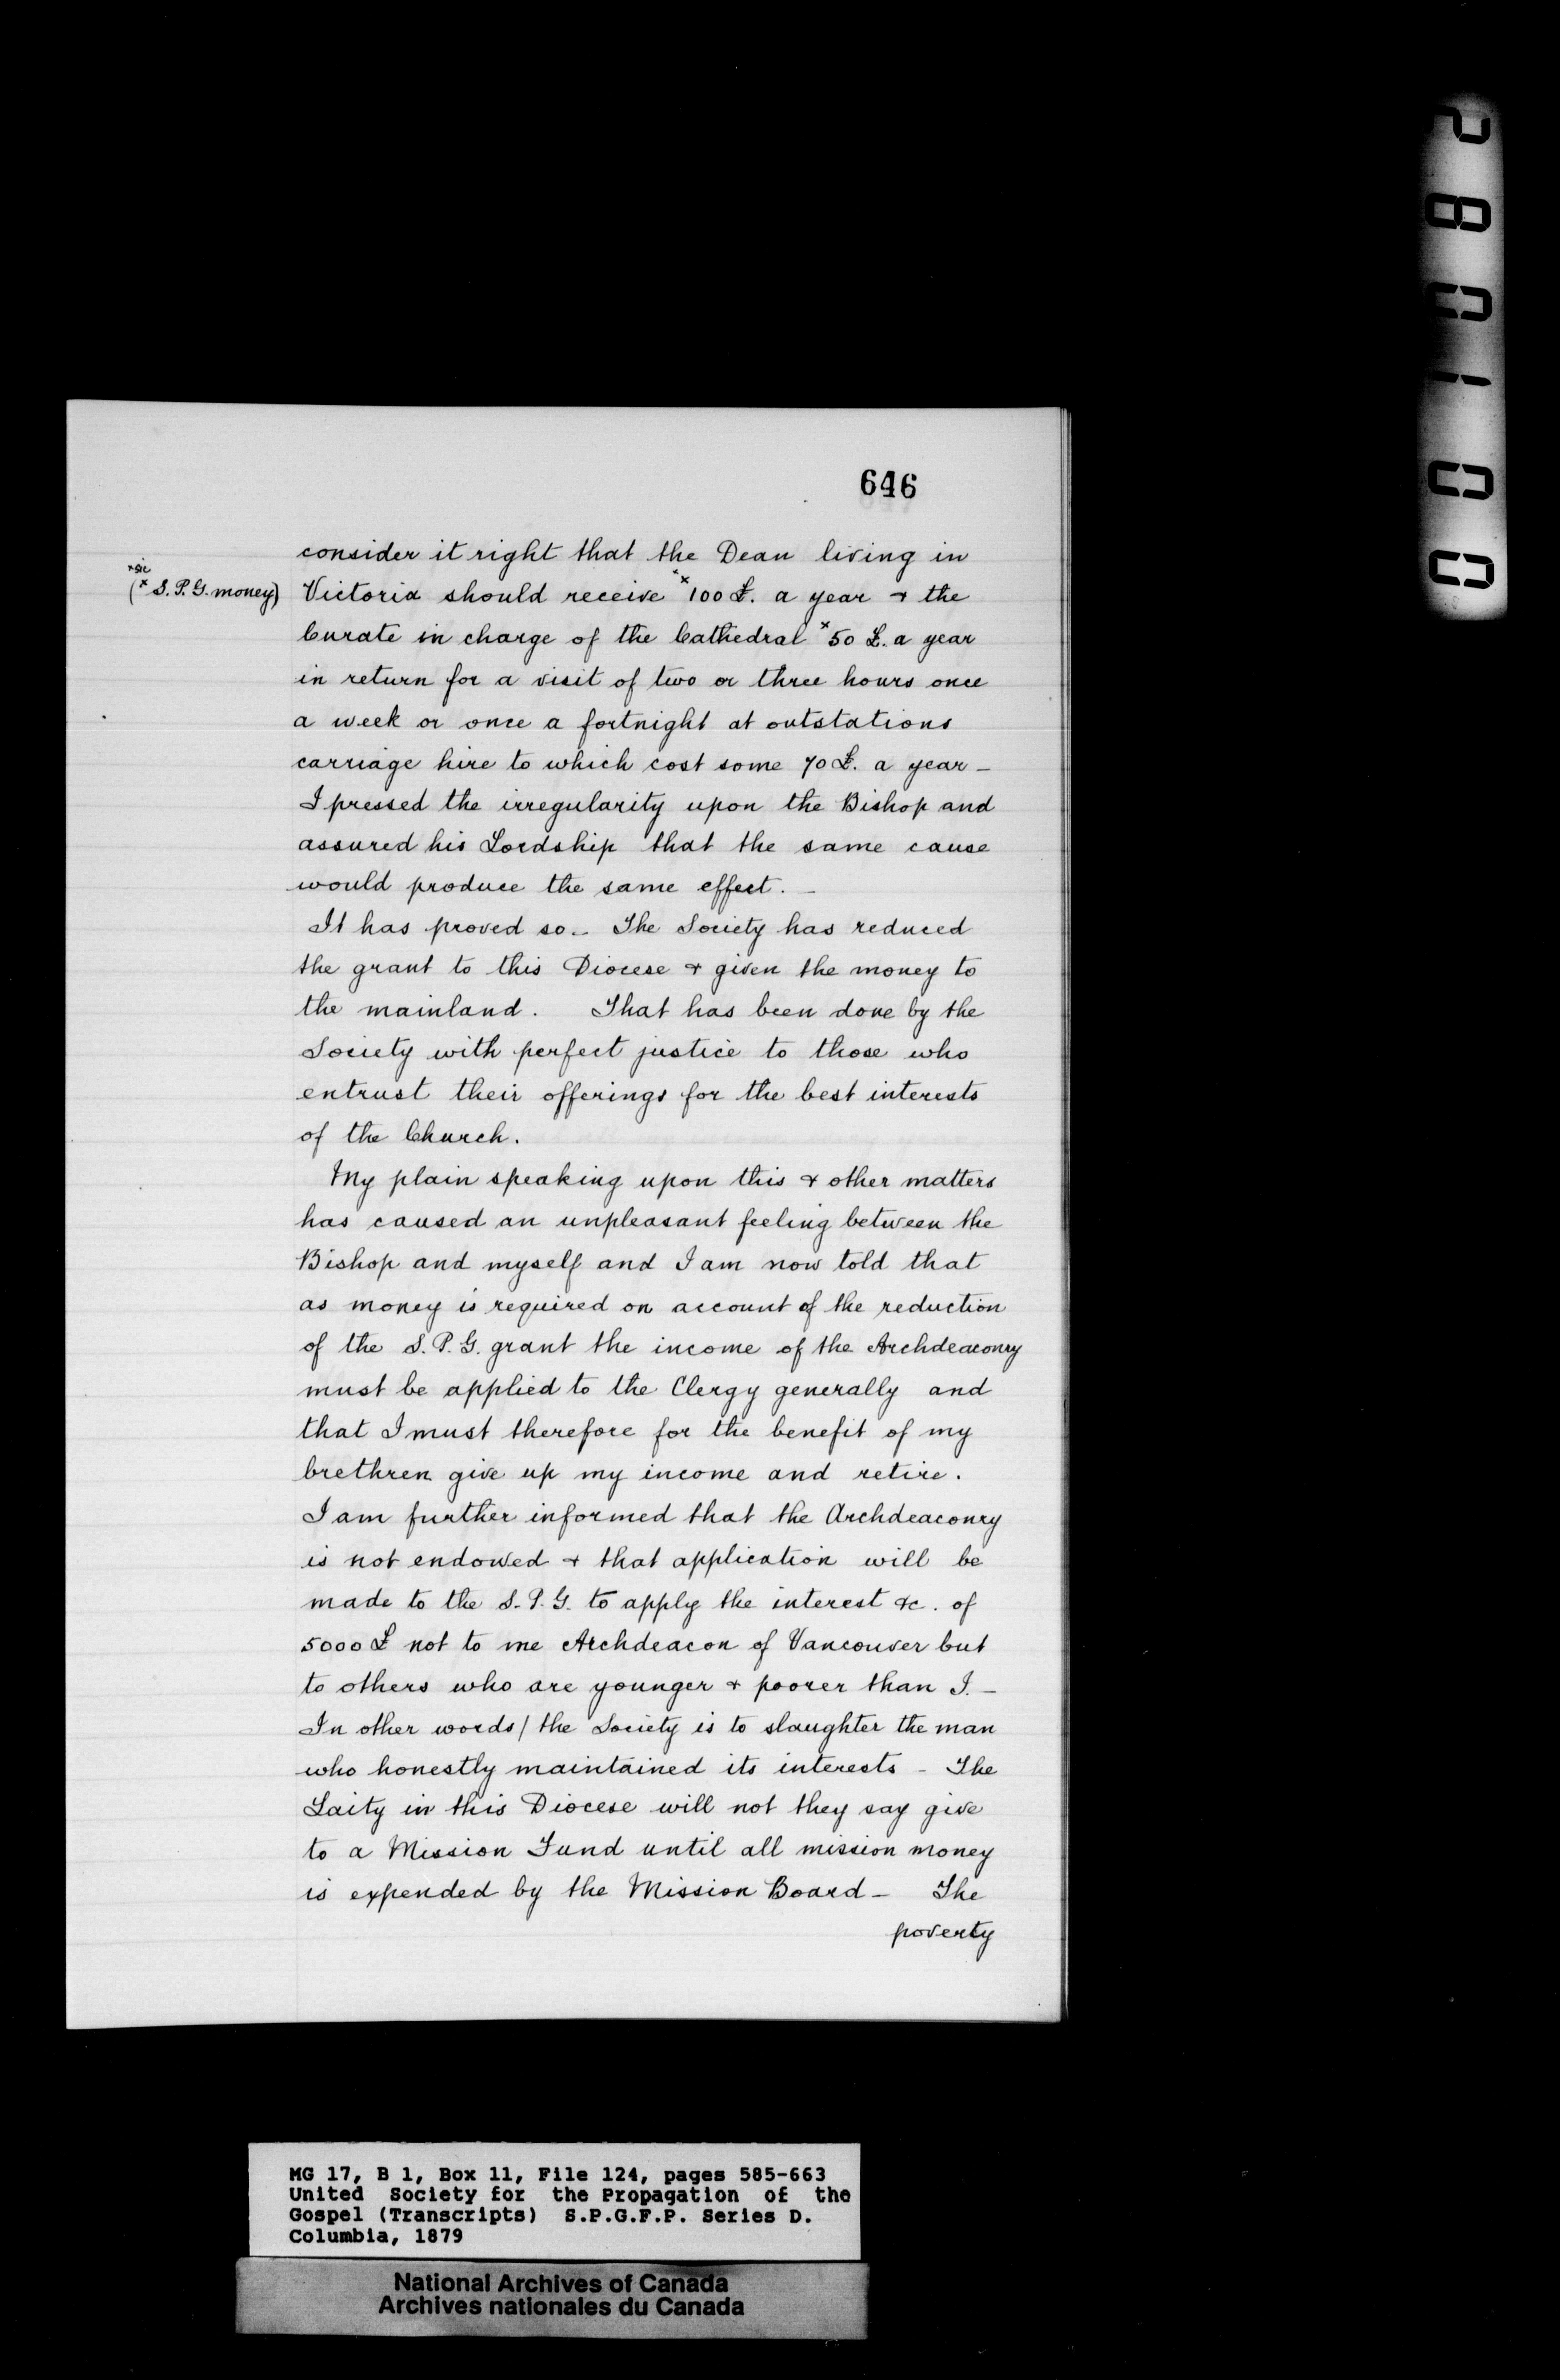 646
consider it right that the Dean living in
*sic
(x S.P.G. money)
Victoria should receive x100 £. a year & the
Curate in charge of the Cathedral x50 £. a year
in return for a visit of two or three hours once
a week or once a fortnight at outstations
carriage hire to which cost some 70 £. a year –
I pressed the irregularity upon the Bishop and
assured his Lordship that the same cause
would produce the same effect. –
It has proved so. – The Society has reduced
the grant to this Diocese & given the money to
the mainland. That has been done by the
Society with perfect justice to those who
entrust their offerings for the best interests
of the Church.
My plain speaking upon this & other matters
has caused an unpleasant feeling between the
Bishop and myself and I am now told that
as money is required on account of the reduction
of the S.P.G. grant the income of the Archdeaconry
must be applied to the Clergy generally and
that I must therefore for the benefit of my
brethren give up my income and retire.
I am further informed that the Archdeaconry
is not endowed & that application will be
made to the S.P.G. to apply the interest &c. of
5000 £ not to me Archdeacon of Vancouver but
to others who are younger & poorer than I. –
In other words/ the Society is to slaughter the man
who honestly maintained its interests – The
Laity in this Diocese will not they say give
to a Mission Fund until all mission money
is expended by the Mission Board – The
poverty
MG 17, B 1, Box 11, File 124, pages 585-663
United Society for the Propagation of the
Gospel (Transcripts) S.P.G.F.P. Series D.
Columbia, 1879
National Archives of Canada
Archives nationales du Canada
280100